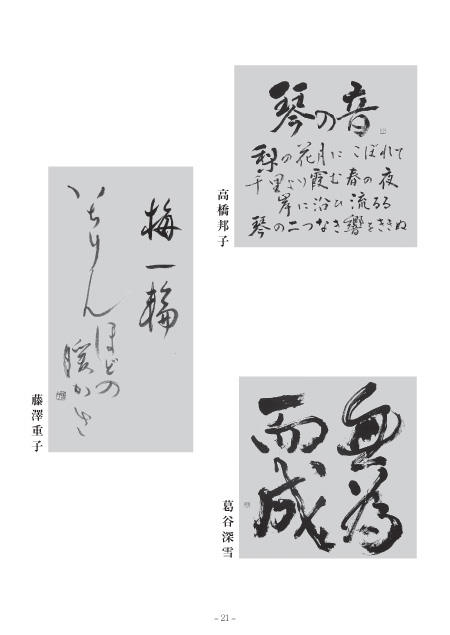 琴の音
梨の花月に こぼれて
千里より霞む春の夜
岸に沿ひ 流るる
琴の二つなき響をききぬ
高橋邦子
梅一輪
いちりん
ほどの
暖かさ
藤澤重子
無為
而成
葛谷深雪
– 21 –